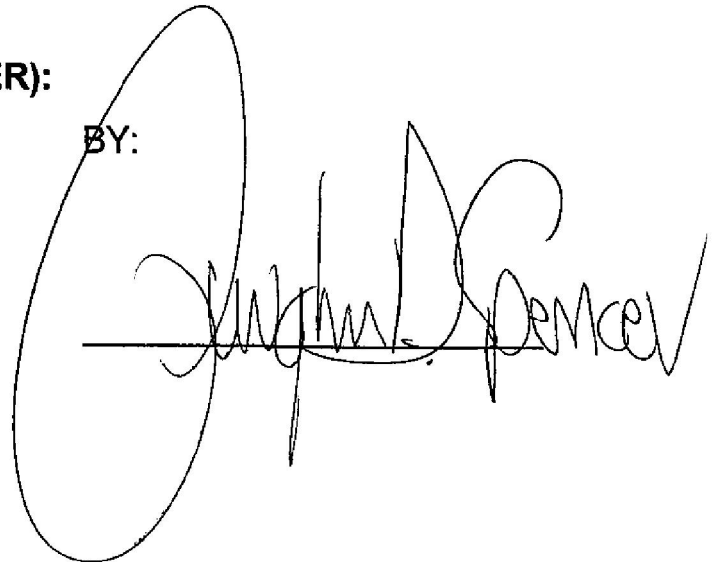 ER):
BY:
D. Spencer